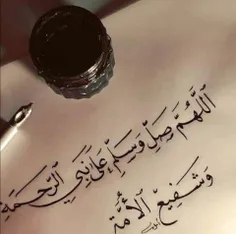 اَللّٰهُمَّ صَلِّ وَسَلِّمْ عَلَى نَبِيِّ الرَّحْمَةِ
وَشَفِيعِ الْأُمَّةِ